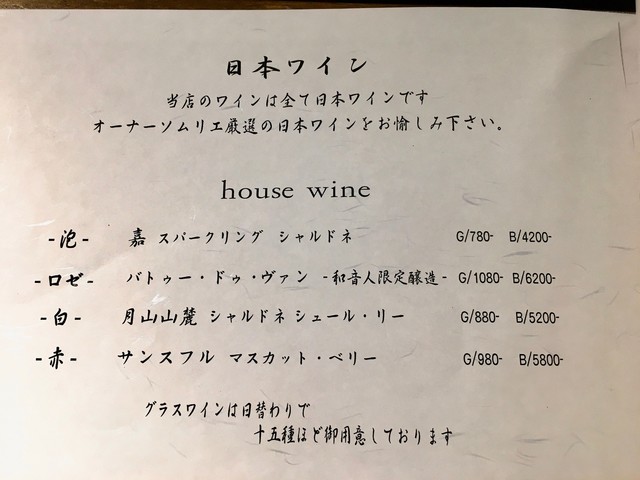 日本ワイン
当店のワインは全て日本ワインです
オーナーソムリエ厳選の日本ワインをお愉しみ下さい。
house wine
-泡- 嘉 スパークリング シャルドネ G/780- B/4200-
-ロゼ- バトゥー・ドゥ・ヴァン -和音人限定醸造- G/1080- B/6200-
-白- 月山山麓 シャルドネ シュール・リー G/880- B/5200-
-赤- サンスフル マスカット・ベリー G/980- B/5800-
グラスワインは日替わりで
十五種ほど御用意しております